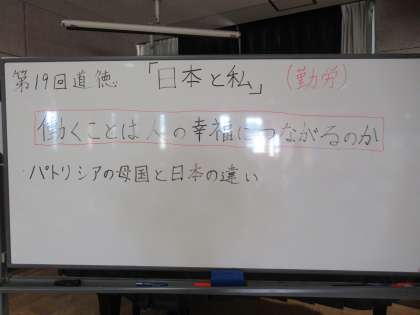 第19回道徳 「日本と私」 (勤労)
働くことは人の幸福につながるのか
・パトリシアの母国と日本の違い